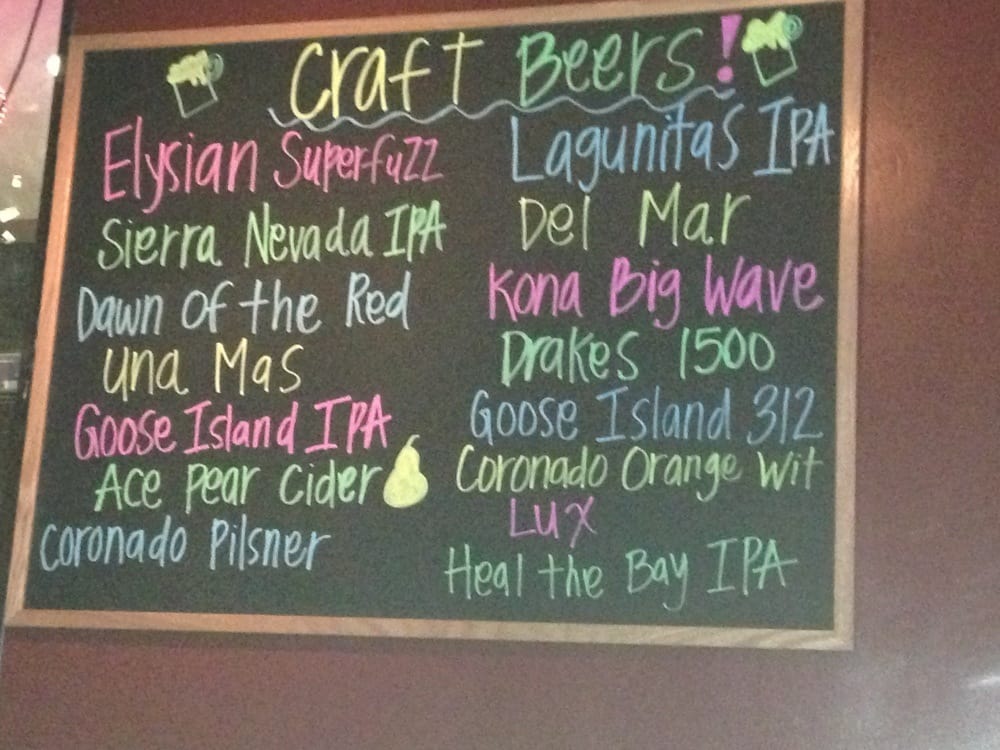 Craft Beers!
Elysian Superfuzz
Sierra Nevada IPA
Dawn of the Red
Una Mas
Goose Island IPA
Ace Pear Cider
Coronado Pilsner
Lagunitas IPA
Del Mar
Kona Big Wave
Drakes 1500
Goose Island 312
Coronado Orange Wit
Lux
Heal the Bay IPA